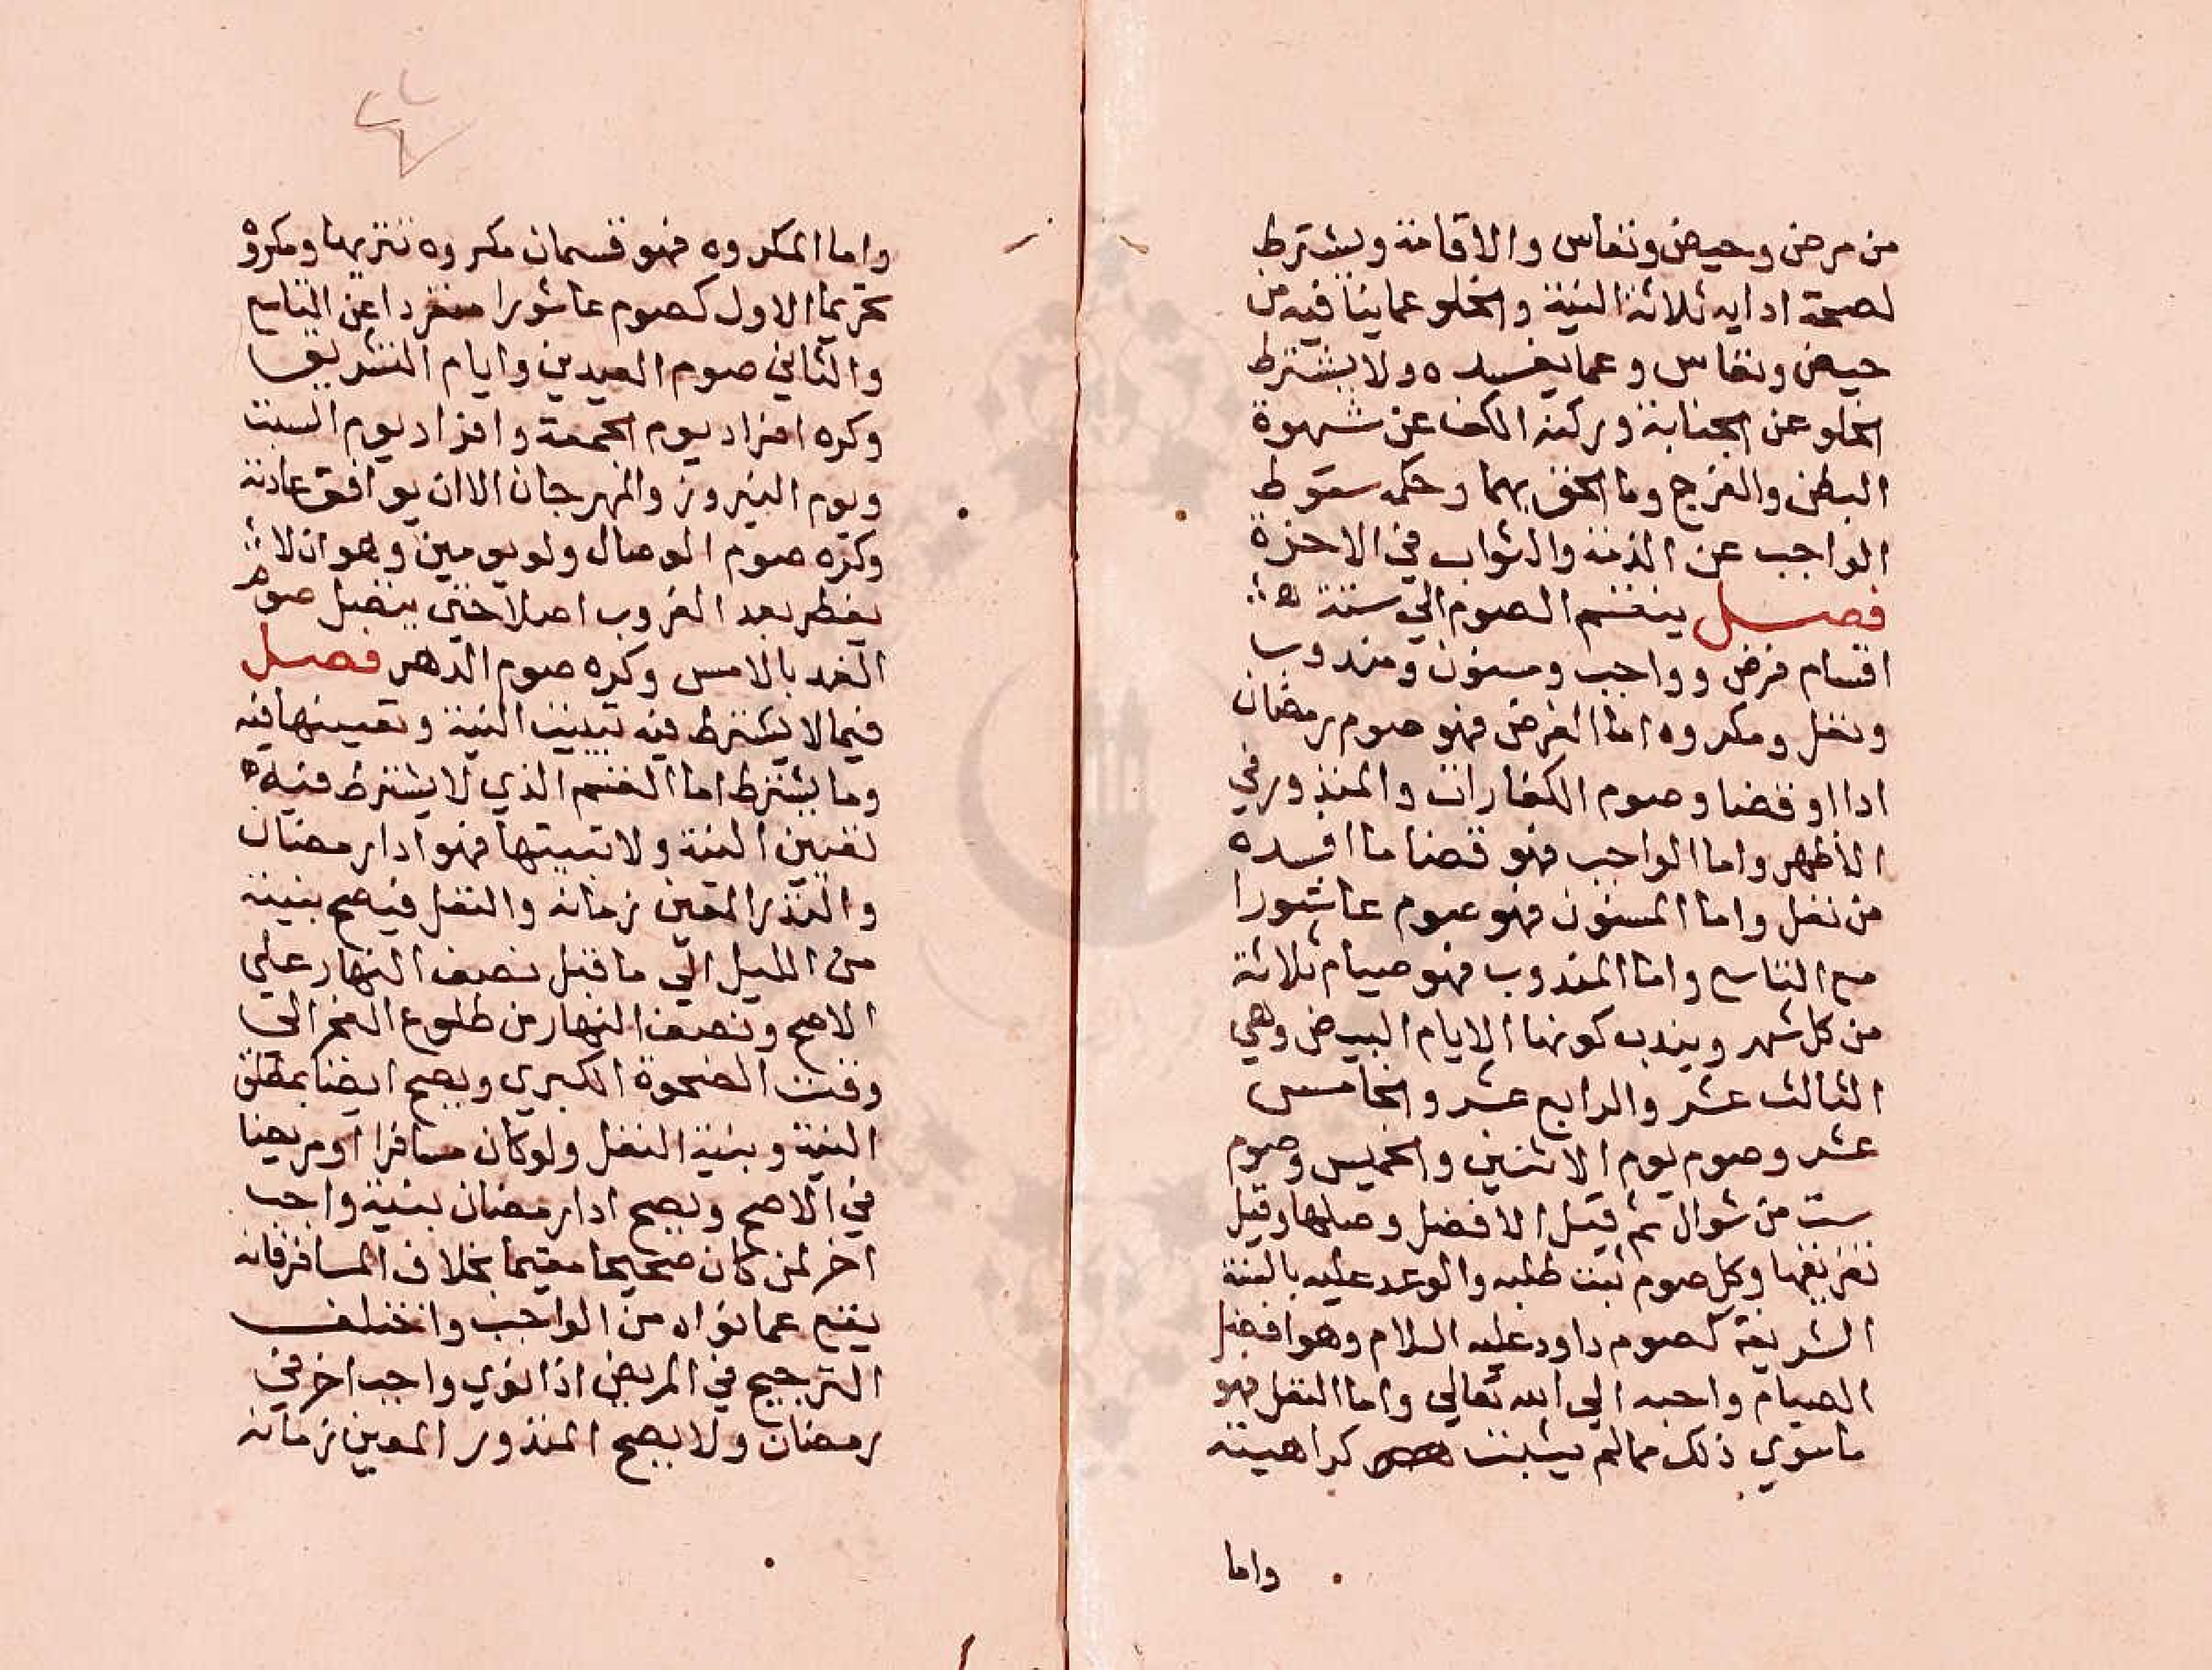 من مرض وحيض ونفاس والاقامة ويشترط
لصحة ادايه ثلاثة النية والخلو عما ينافيه من
حيض ونفاس وعما يفسده ولا يشترط
الخلو عن الجنابة وركنه الكف عن شهوة
البطن والفرج وما الحق بهما وحكمه سقوط
الواجب عن الذمة والثواب في الاخرة
فصل ينقسم الصوم الي ستة
اقسام فرض وواجب ومسنون ومندوب
ونفل ومكروه اما الفرض فهو صوم رمضان
ادا او قضا وصوم الكفارات والمنذور في
الاظهر واما الواجب فهو قضا ما افسده
من نفل واما المسنون فهو صوم عاشورا
مع التاسع واما المندوب فهو صيام ثلاثة
من كل شهر ويندب كونها الايام البيض وهي
الثالث عشر والرابع عشر والخامس
عشر وصوم يوم الاثنين والخميس وصوم
ست من شوال ثم قيل الافضل وصلها وقيل
تفريقها وكل صوم ثبت طلبه والوعد عليه بالسنة
الشريفة كصوم داود عليه السلام وهو افضل
الصيام واحبه الي الله تعالي واما النفل فهو
ما سوي ذلك مما لم يثبت كراهيته
واما
واما المكروه فهو قسمان مكروه تنزيها ومكروه
تحريما الاول كصوم عاشورا منفردا عن التاسع
والثاني صوم العيدين وايام التشريق
وكره افراد يوم الجمعة وافراد يوم السبت
ويوم النيروز والمهرجان الا ان يوافق عادته
وكره صوم الوصال ولو يومين وهو ان لا
يفطر بعد الغروب اصلا حتي يتصل صوم
الغد بالامس وكره صوم الدهر فصل
فيما لا يشترط فيه تبييت النية وتعيينها فيه
وما يشترط اما القسم الذي لا يشترط فيه
تعيين النية ولا تبيتها فهو ادا رمضان
والنذر المعين زمانه والنفل فيصح بنية
من الليل الي ما قبل نصف النهار علي
الاصح ونصف النهار من طلوع الفجر الي
وقت الضحوة الكبري ويصح ايضا بمطلق
النية وبنية النفل ولو كان مسافرا او مريضا
في الاصح ويصح ادا رمضان بنية واجب
اخر لمن كان صحيحا مقيما بخلاف المسافر فانه
يقع عما نواه من الواجب واختلف
الترجيح في المريض اذا نوي واجب اخر في
رمضان ولا يصح المنذور المعين زمانه